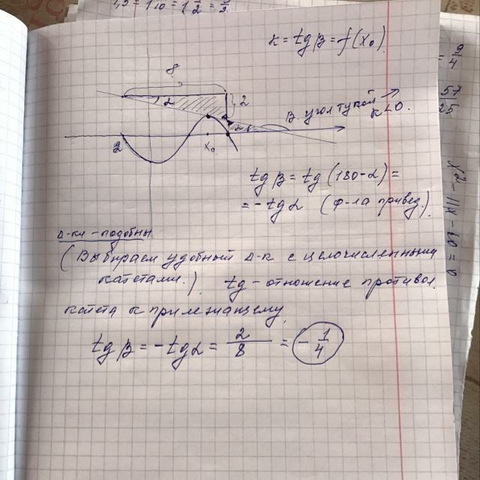 1,5 = 1 10 = 1 1/2 = 3/2
k = tg β = f(x₀)
= 9/4
57
25
8
2
α
2
β угол тупой
k<0.
α
x₀
tg β = tg (180-α) =
= -tg α (ф-ла привед.)
Δ-ки - подобны
(Выбираем удобный Δ-к с целочисленными
катетами.) tg - отношение противол.
катета к прилежащему.
tg β = -tg α = 2/8 = -1/4